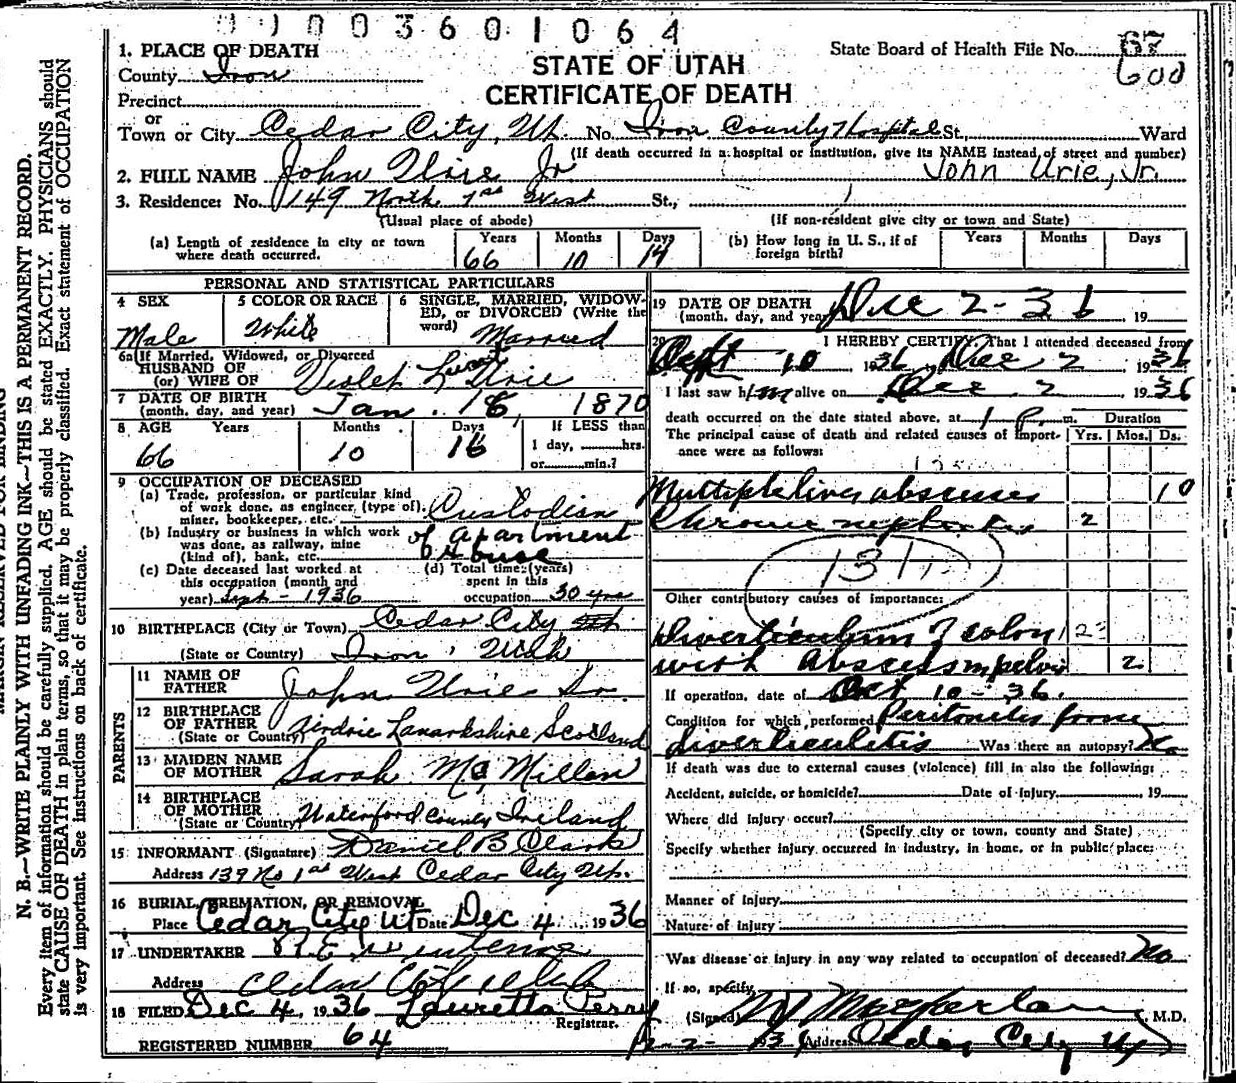 0003601064
1. PLACE OF DEATH
STATE OF UTAH
CERTIFICATE OF DEATH
State Board of Health File No. 67
600
County Iron
Precinct
or
Town or City Cedar City, Ut. No. Iron County Hospital St., Ward
(If death occurred in a hospital or institution, give its NAME instead of street and number)
2. FULL NAME John Urie Jr John Urie, Jr.
3. Residence: No. 149 North 1st West St.,
(Usual place of abode) (If non-resident give city or town and State)
(a) Length of residence in city or town where death occurred. Years 66 Months 10 Days 14
(b) How long in U. S., if of foreign birth? Years Months Days
PERSONAL AND STATISTICAL PARTICULARS
4 SEX Male
5 COLOR OR RACE White
6 SINGLE, MARRIED, WIDOWED, or DIVORCED (Write the word) Married
6a If Married, Widowed, or Divorced
HUSBAND OF
(or) WIFE OF Violet Urie
7 DATE OF BIRTH
(month, day, and year) Jan. 16, 1870
8 AGE Years 66 Months 10 Days 16 If LESS than
1 day, hrs.
or min.?
9 OCCUPATION OF DECEASED
(a) Trade, profession, or particular kind
of work done, as engineer (type of),
miner, bookkeeper, etc. Custodian
(b) Industry or business in which work
was done, as railway, mine
(kind of), bank, etc. of apartment house
(c) Date deceased last worked at
this occupation (month and
year) Sept - 1936
(d) Total time (years)
spent in this
occupation 30 yrs
10 BIRTHPLACE (City or Town) Cedar City
(State or Country) Iron, Utah
PARENTS
11 NAME OF
FATHER John Urie Sr.
12 BIRTHPLACE
OF FATHER
(State or Country) Airdrie Lanarkshire Scotland
13 MAIDEN NAME
OF MOTHER Sarah McMillen
14 BIRTHPLACE
OF MOTHER
(State or Country) Waterford County Ireland
15 INFORMANT (Signature) Daniel B Clark
Address 139 No 1st West Cedar City Ut.
16 BURIAL, CREMATION, OR REMOVAL
Place Cedar City Ut Date Dec 4, 1936
17 UNDERTAKER
Address Cedar City Utah
18 FILED Dec 4, 1936 Lauretta Perry
Registrar.
REGISTERED NUMBER 64
19 DATE OF DEATH
(month, day, and year) Dec 2-36, 19
20 I HEREBY CERTIFY, That I attended deceased from
Sept 10 1936, Dec 2, 1936
I last saw him alive on Dec. 2, 1936
death occurred on the date stated above, at 1 P. m. Duration
The principal cause of death and related causes of importance were as follows: Yrs. Mos. Ds.
Multiple liver abscesses 10
Chronic nephritis 2
131
Other contributory causes of importance:
Diverticulum of colon
with abscess in pelvis 2
If operation, date of Oct 10-36.
Condition for which performed Peritonitis from
diverticulitis Was there an autopsy? No
If death was due to external causes (violence) fill in also the following:
Accident, suicide, or homicide? Date of injury 19
Where did injury occur?
(Specify city or town, county and State)
Specify whether injury occurred in industry, in home, or in public place:
Manner of Injury
Nature of Injury
Was disease or injury in any way related to occupation of deceased? No
If so, specify
(Signed) Macfarlane, M.D.
Address Cedar City Ut
N. B.—WRITE PLAINLY WITH UNFADING INK—THIS IS A PERMANENT RECORD.
Every item of information should be carefully supplied. AGE should be stated EXACTLY. PHYSICIANS should
state CAUSE OF DEATH in plain terms, so that it may be properly classified. Exact statement of OCCUPATION
is very important. See instructions on back of certificate.